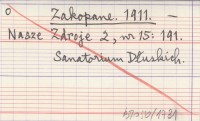 o Zakopane. 1911. –
Nasze Zdroje 2, nr 15: 191.
Sanatorium Dłuskich.